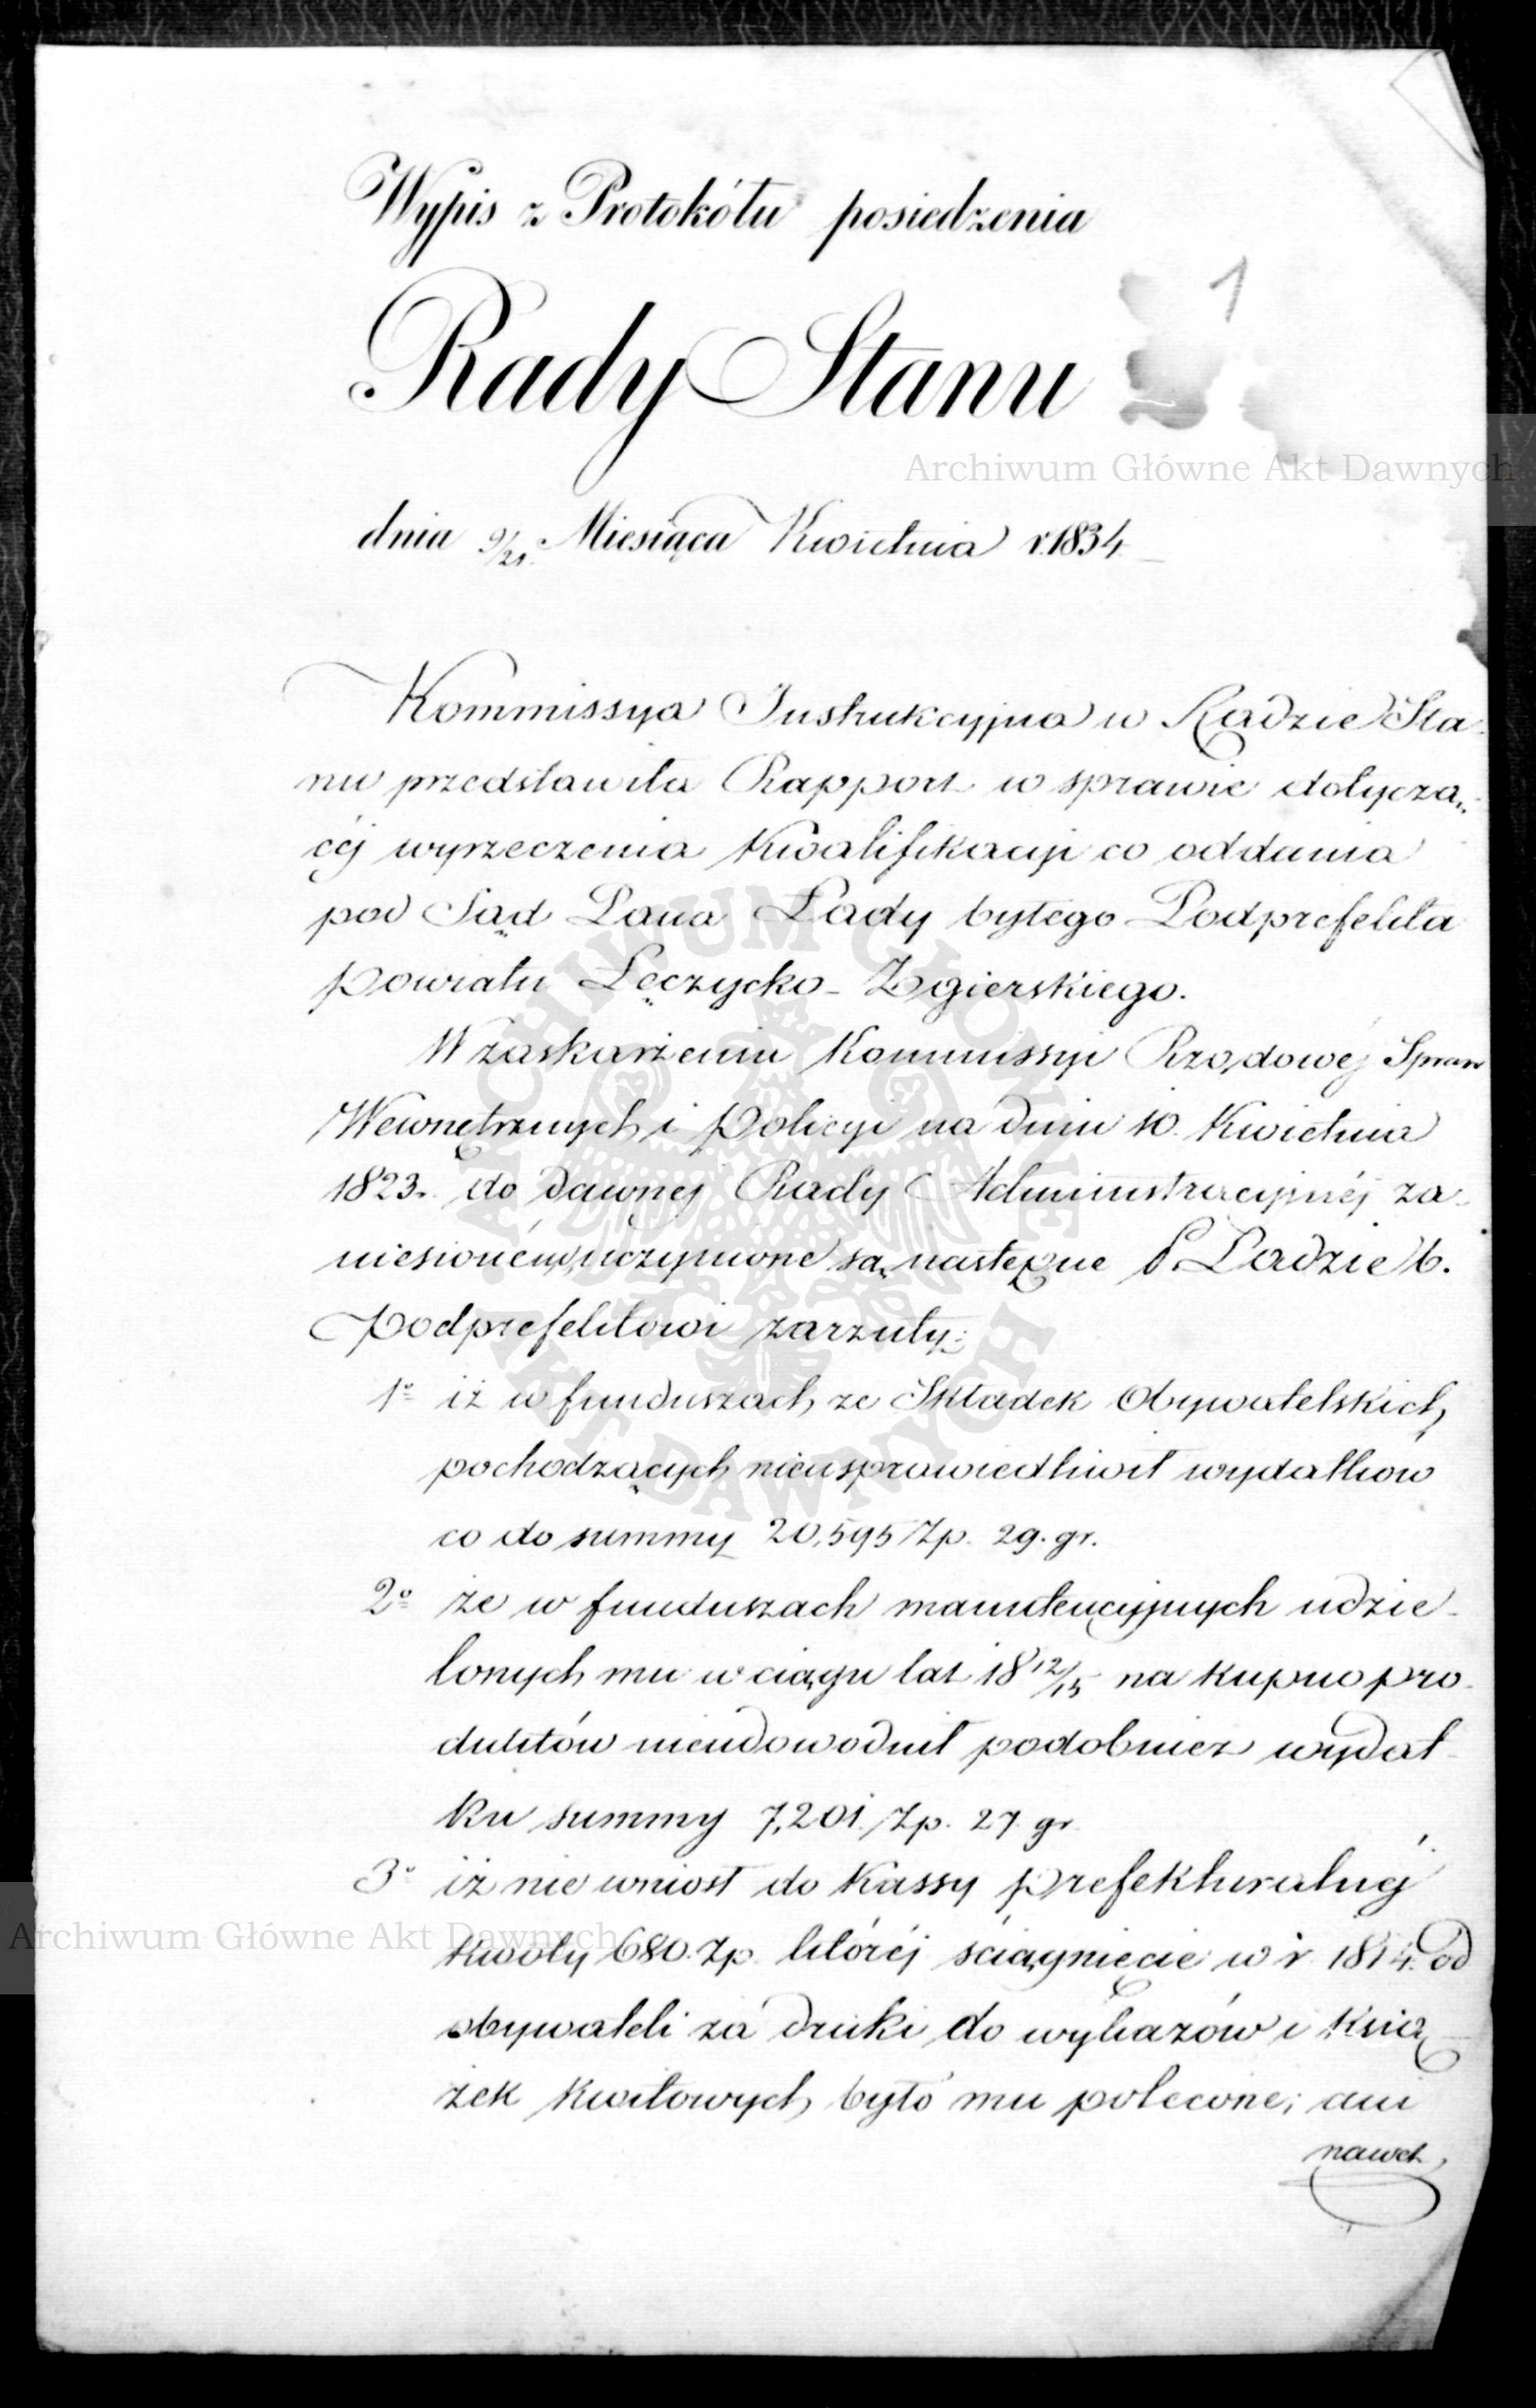 Wypis z Protokółu posiedzenia
1
Rady Stanu
Archiwum Główne Akt Dawnych
dnia 9/21. Miesiąca Kwietnia r. 1834
Kommissya Instrukcyjna w Radzie Sta-
nu przedstawiła Rapport w sprawie dotyczą-
céj wyrzeczenia Kwalifikacyi co oddania
pod Sąd Pana Lady byłego Podprefekta
powiatu Łęczycko-Zgierskiego.
W zaskarżeniu Kommissyi Rządowéj Spraw
Wewnętrznych i Policyi na dniu 10. Kwietnia
1823. do dawnej Rady Administracyjnéj za-
niesioném, uczynione są następne P. Ladzie b.
Podprefektowi zarzuty:
1º iż w funduszach ze Składek Obywatelskich
pochodzących nieusprawiedliwił wydatków
co do summy 20,595 Zp. 29. gr.
2º że w funduszach manutencyjnych udzie-
lonych mu w ciągu lat 18 12/15 na kupno pro-
duktów nieudowodnił podobnież wydat-
ku summy 7,201. Zp. 27 gr.
3º iż nie wniósł do Kassy prefekturalnéj
Archiwum Główne Akt Dawnych
kwoty 680. Zp. któréj ściągnięcie w r. 1814. od
obywateli za druki do wykazów i Ksią-
żek Kwitowych było mu polecone; ani
nawet
ARCHIWUM GŁÓWNE
AKT DAWNYCH